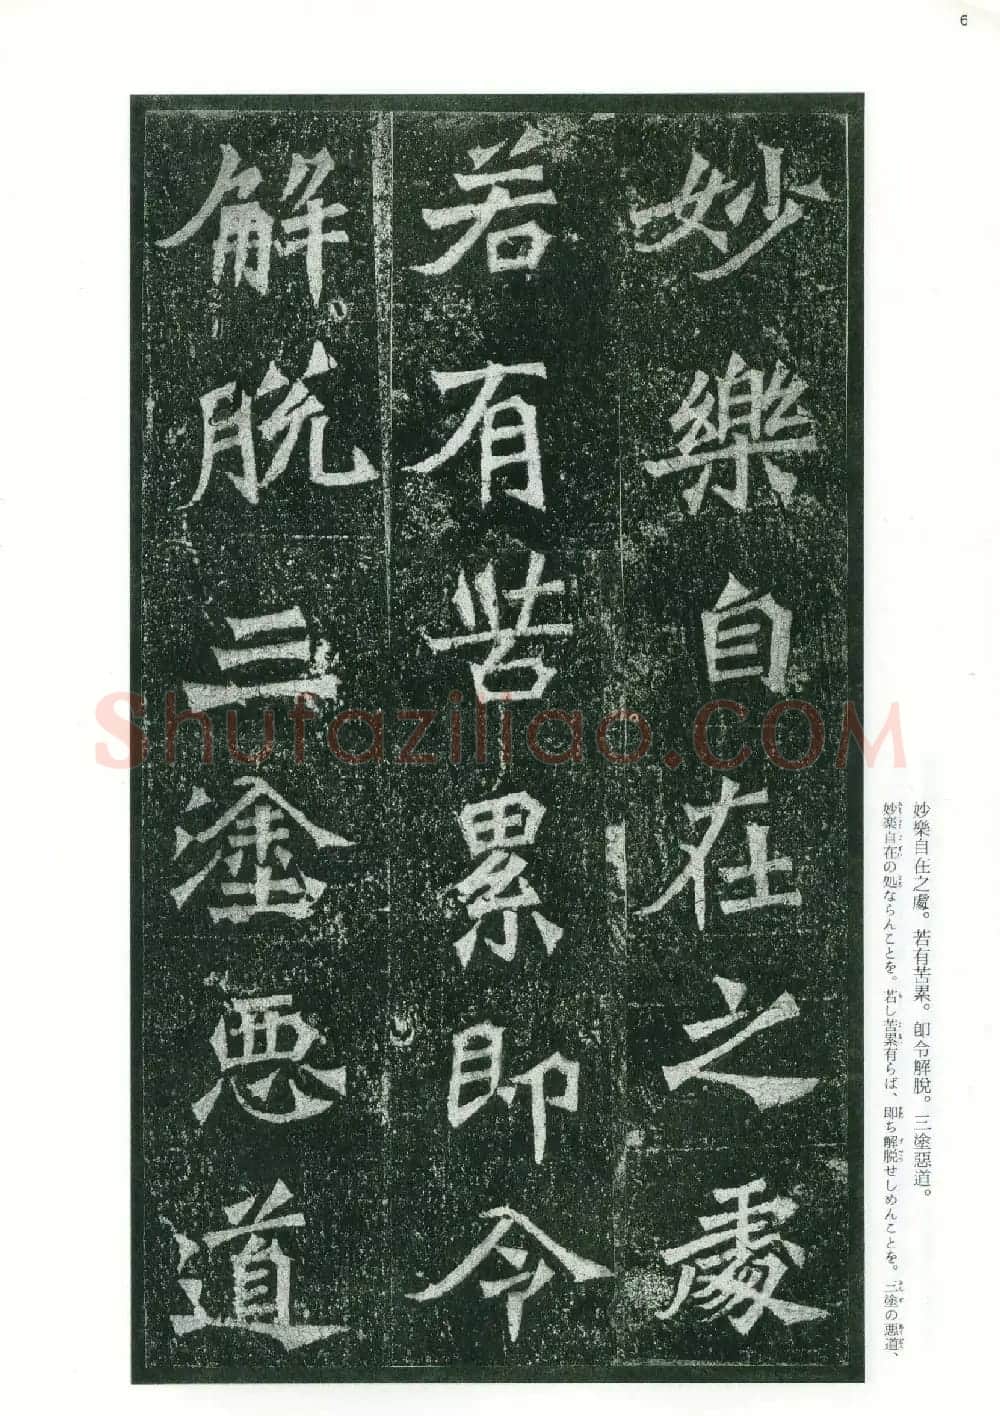 6
妙樂自在之處
若有苦累即令
解脱三塗惡道
妙樂自在之處。若有苦累。卽令解脫。三塗惡道。
妙楽自在の処ならんことを。若し苦累有らば、即ち解脱せしめんことを。三塗の悪道、
Shufaziliao.COM